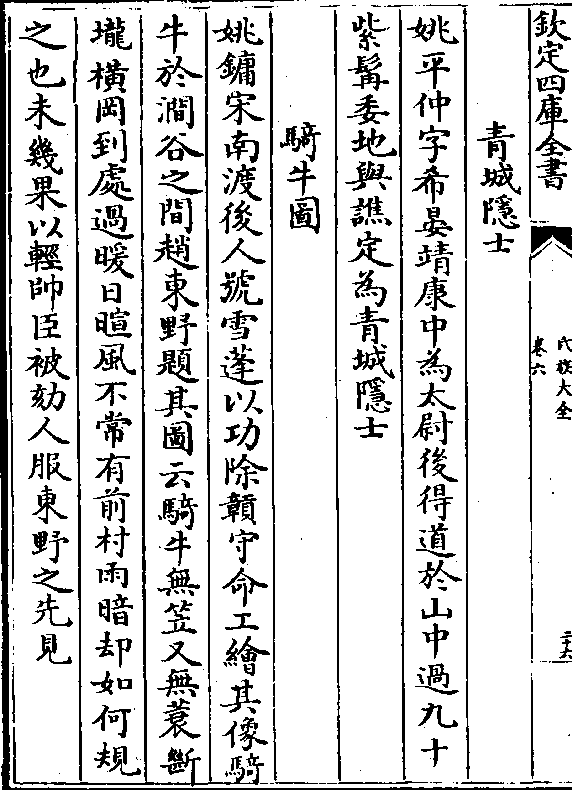 欽定四庫全書
氏族大全
卷六
二十六
青城隱士
姚平仲字希晏靖康中為太尉後得道於山中過九十
紫髯委地與譙定為青城隱士
騎牛圖
姚鏞宋南渡後人號雪蓬以功除贑守命工繪其像騎
牛於澗谷之間趙東野題其圖云騎牛無笠又無蓑斷
壠橫岡到處過暖日暄風不常有前村雨暗却如何規
之也未幾果以輕帥臣被劾人服東野之先見